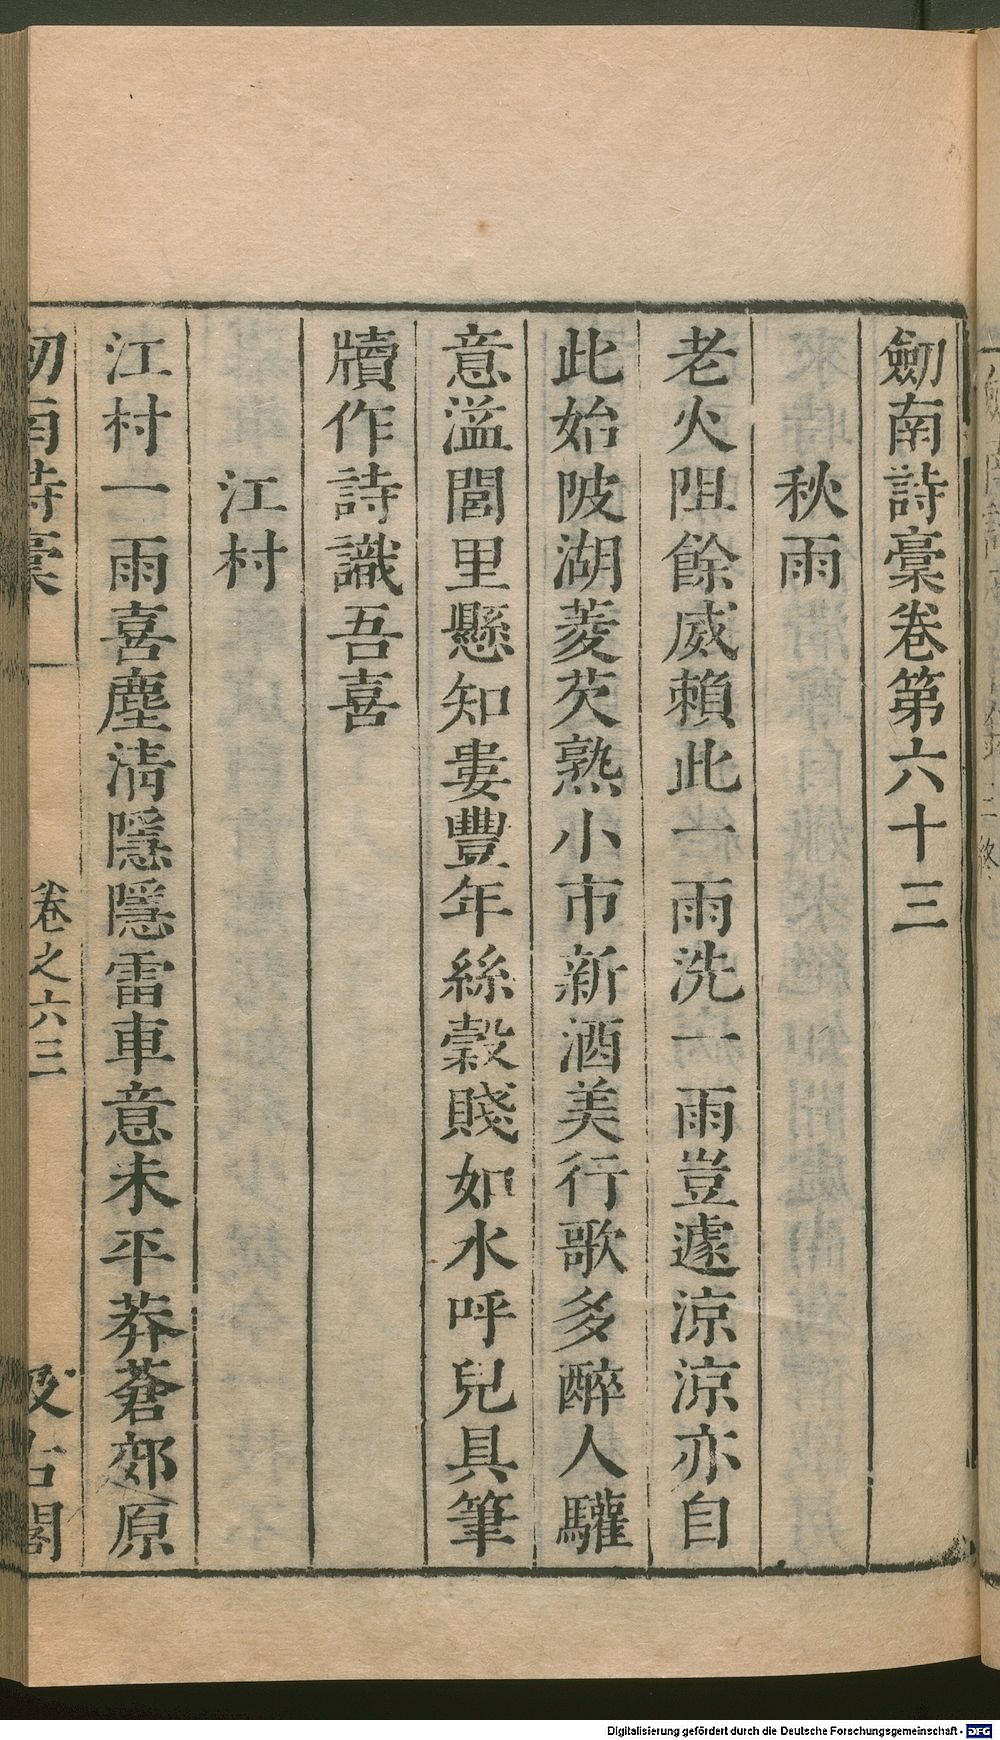 劒南詩稾卷第六十三
秋雨
老火阻餘威賴此一雨洗一雨豈遽涼涼亦自
此始陂湖菱芡熟小市新酒美行歌多醉人驩
意溢閭里懸知婁豐年絲穀賤如水呼兒具筆
牘作詩識吾喜
江村
江村一雨喜塵清隱隱雷車意未平莽蒼郊原
劒南詩稾
卷之六三
汲古閣
Digitalisierung gefördert durch die Deutsche Forschungsgemeinschaft - DFG